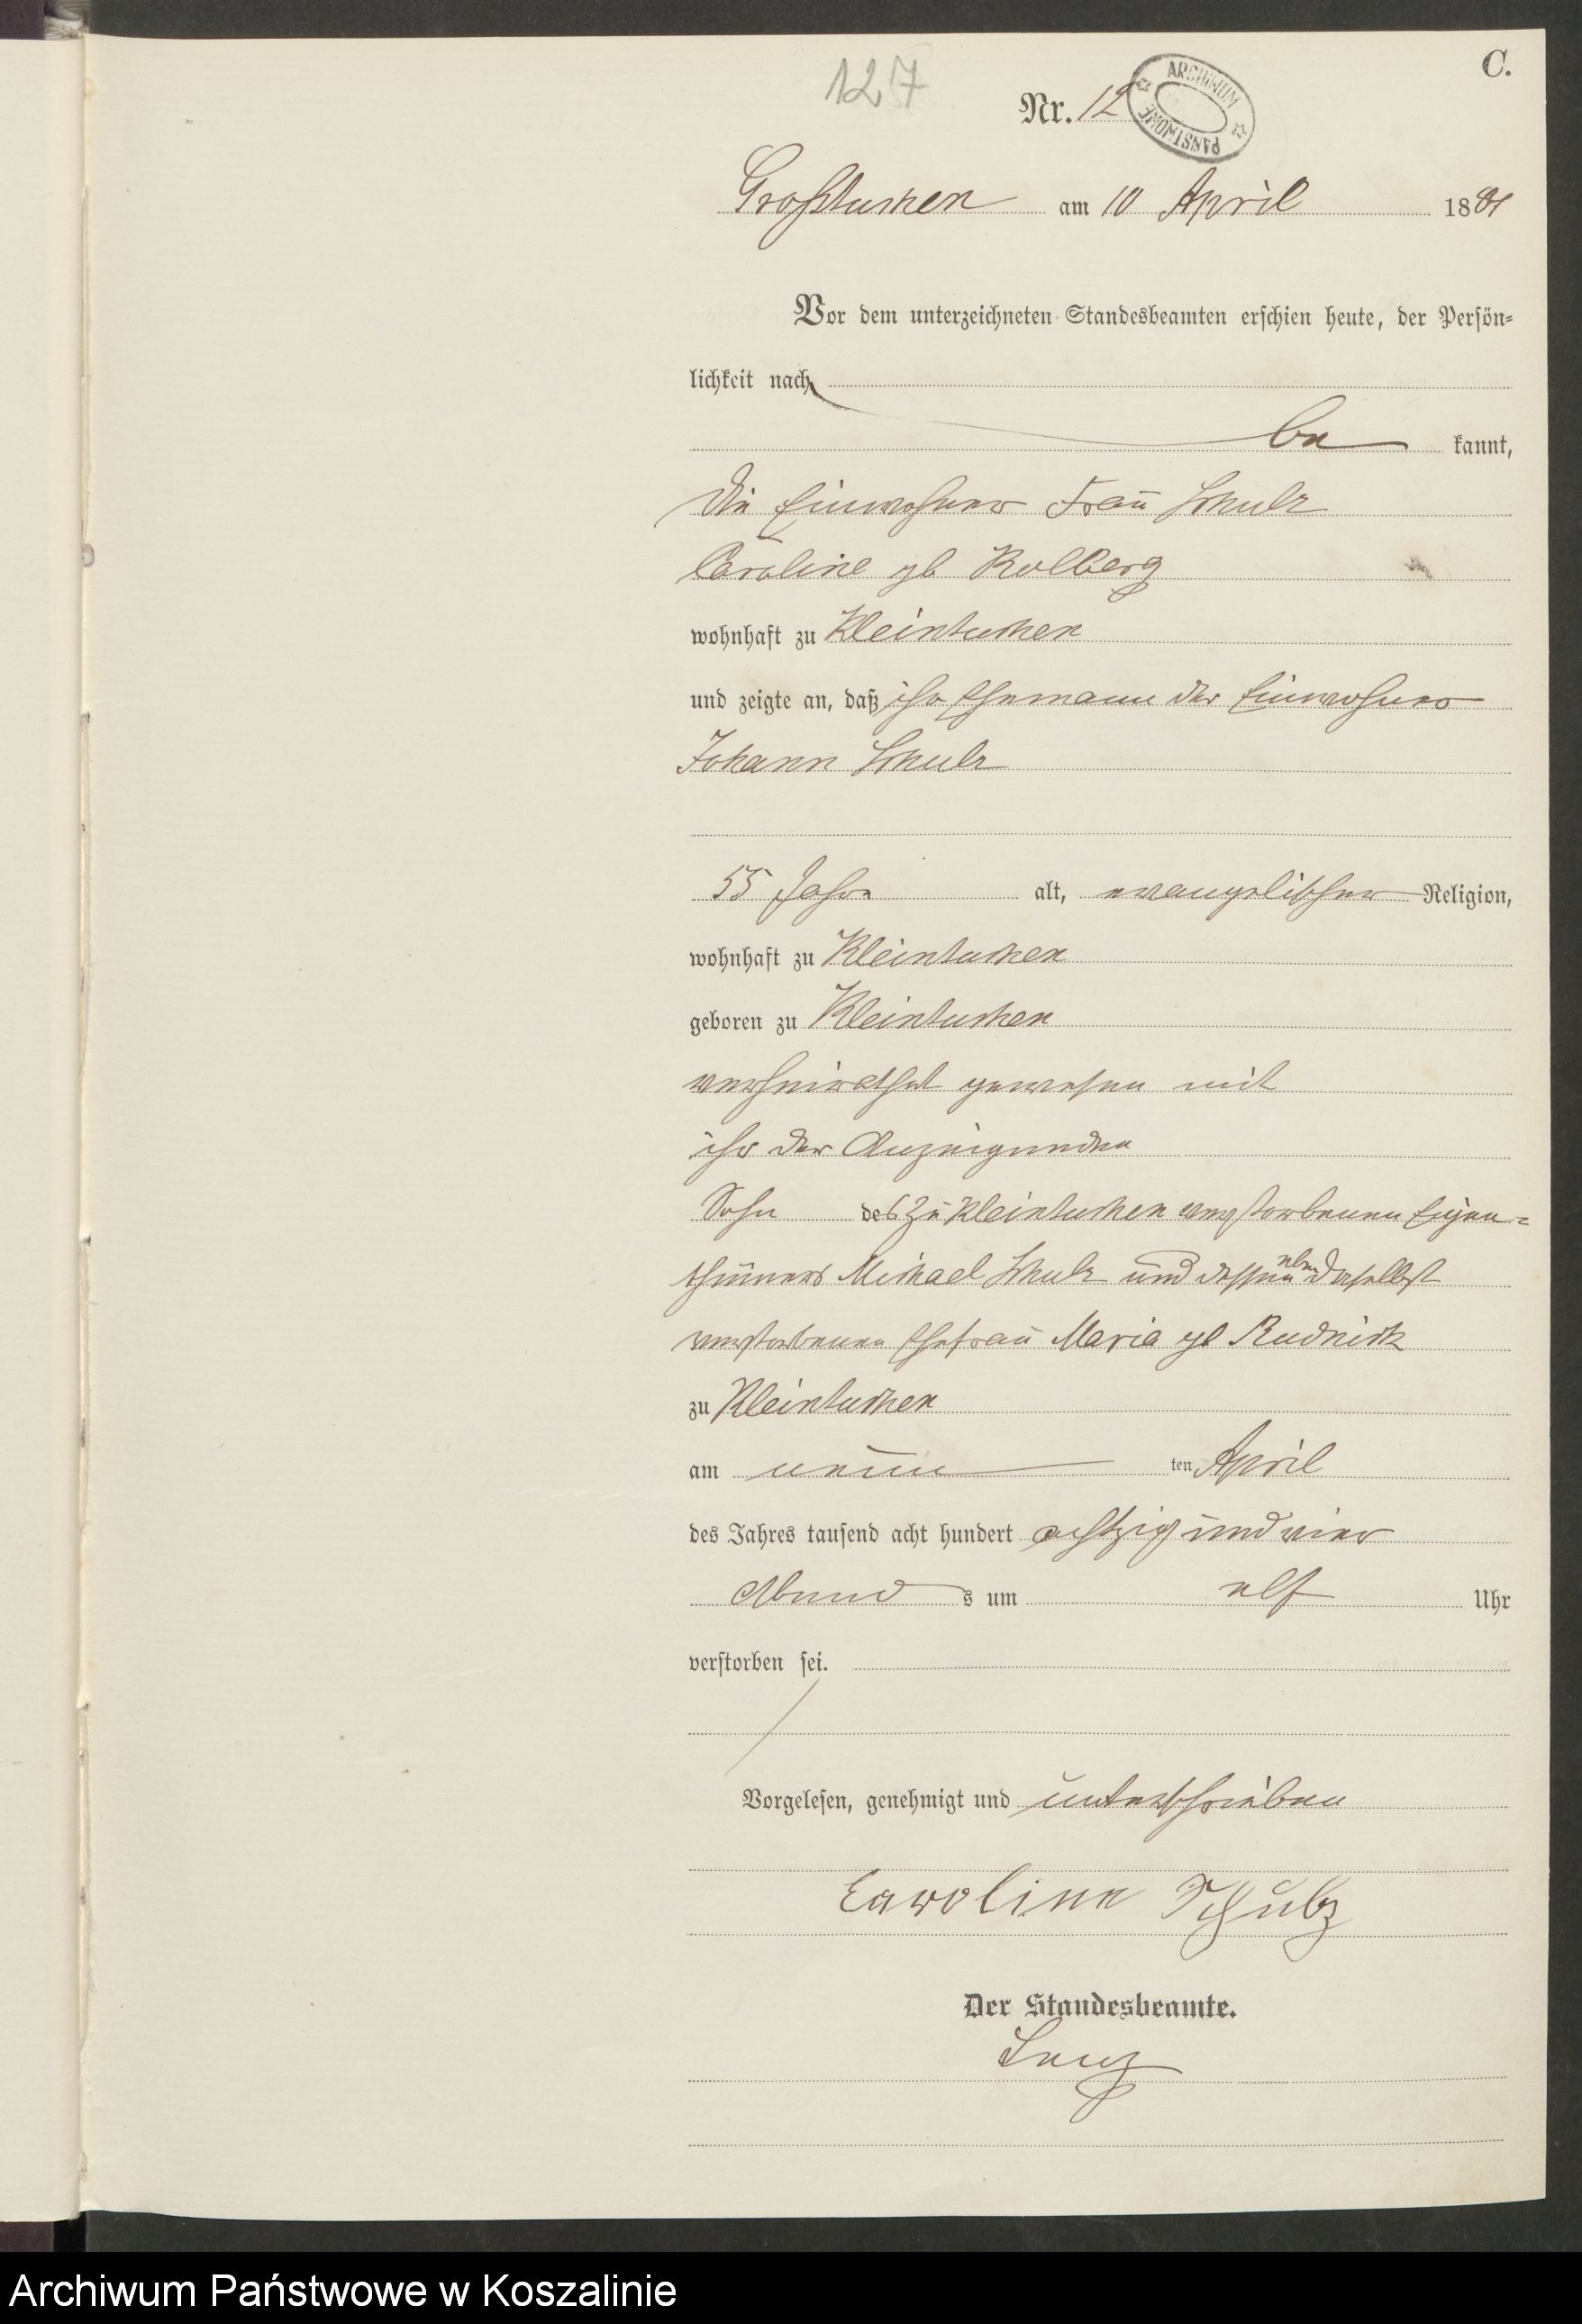 C.
127
Nr. 12
ARCHIWUM PAŃSTWOWE
Großtuchen am 10 April 1884
Vor dem unterzeichneten Standesbeamten erschien heute, der Persön-
lichkeit nach
be kannt,
die Einwohner Frau Schulz
Caroline gb Kolberg
wohnhaft zu Kleintuchen
und zeigte an, daß ihr Ehemann der Einwohner
Johann Schulz
55 Jahre alt, evangelischer Religion,
wohnhaft zu Kleintuchen
geboren zu Kleintuchen
verheirathet gewesen mit
ihr der Anzeigenden
Sohn des zu Kleintuchen verstorbenen Eigen-
thümers Michael Schulz und dessen eben daselbst
verstorbenen Ehefrau Maria gb Rudnick
zu Kleintuchen
am neun ten April
des Jahres tausend acht hundert achtzig und vier
Abend s um elf Uhr
verstorben sei.
Vorgelesen, genehmigt und unterschrieben
Caroline Schulz
Der Standesbeamte.
Lenz
Archiwum Państwowe w Koszalinie